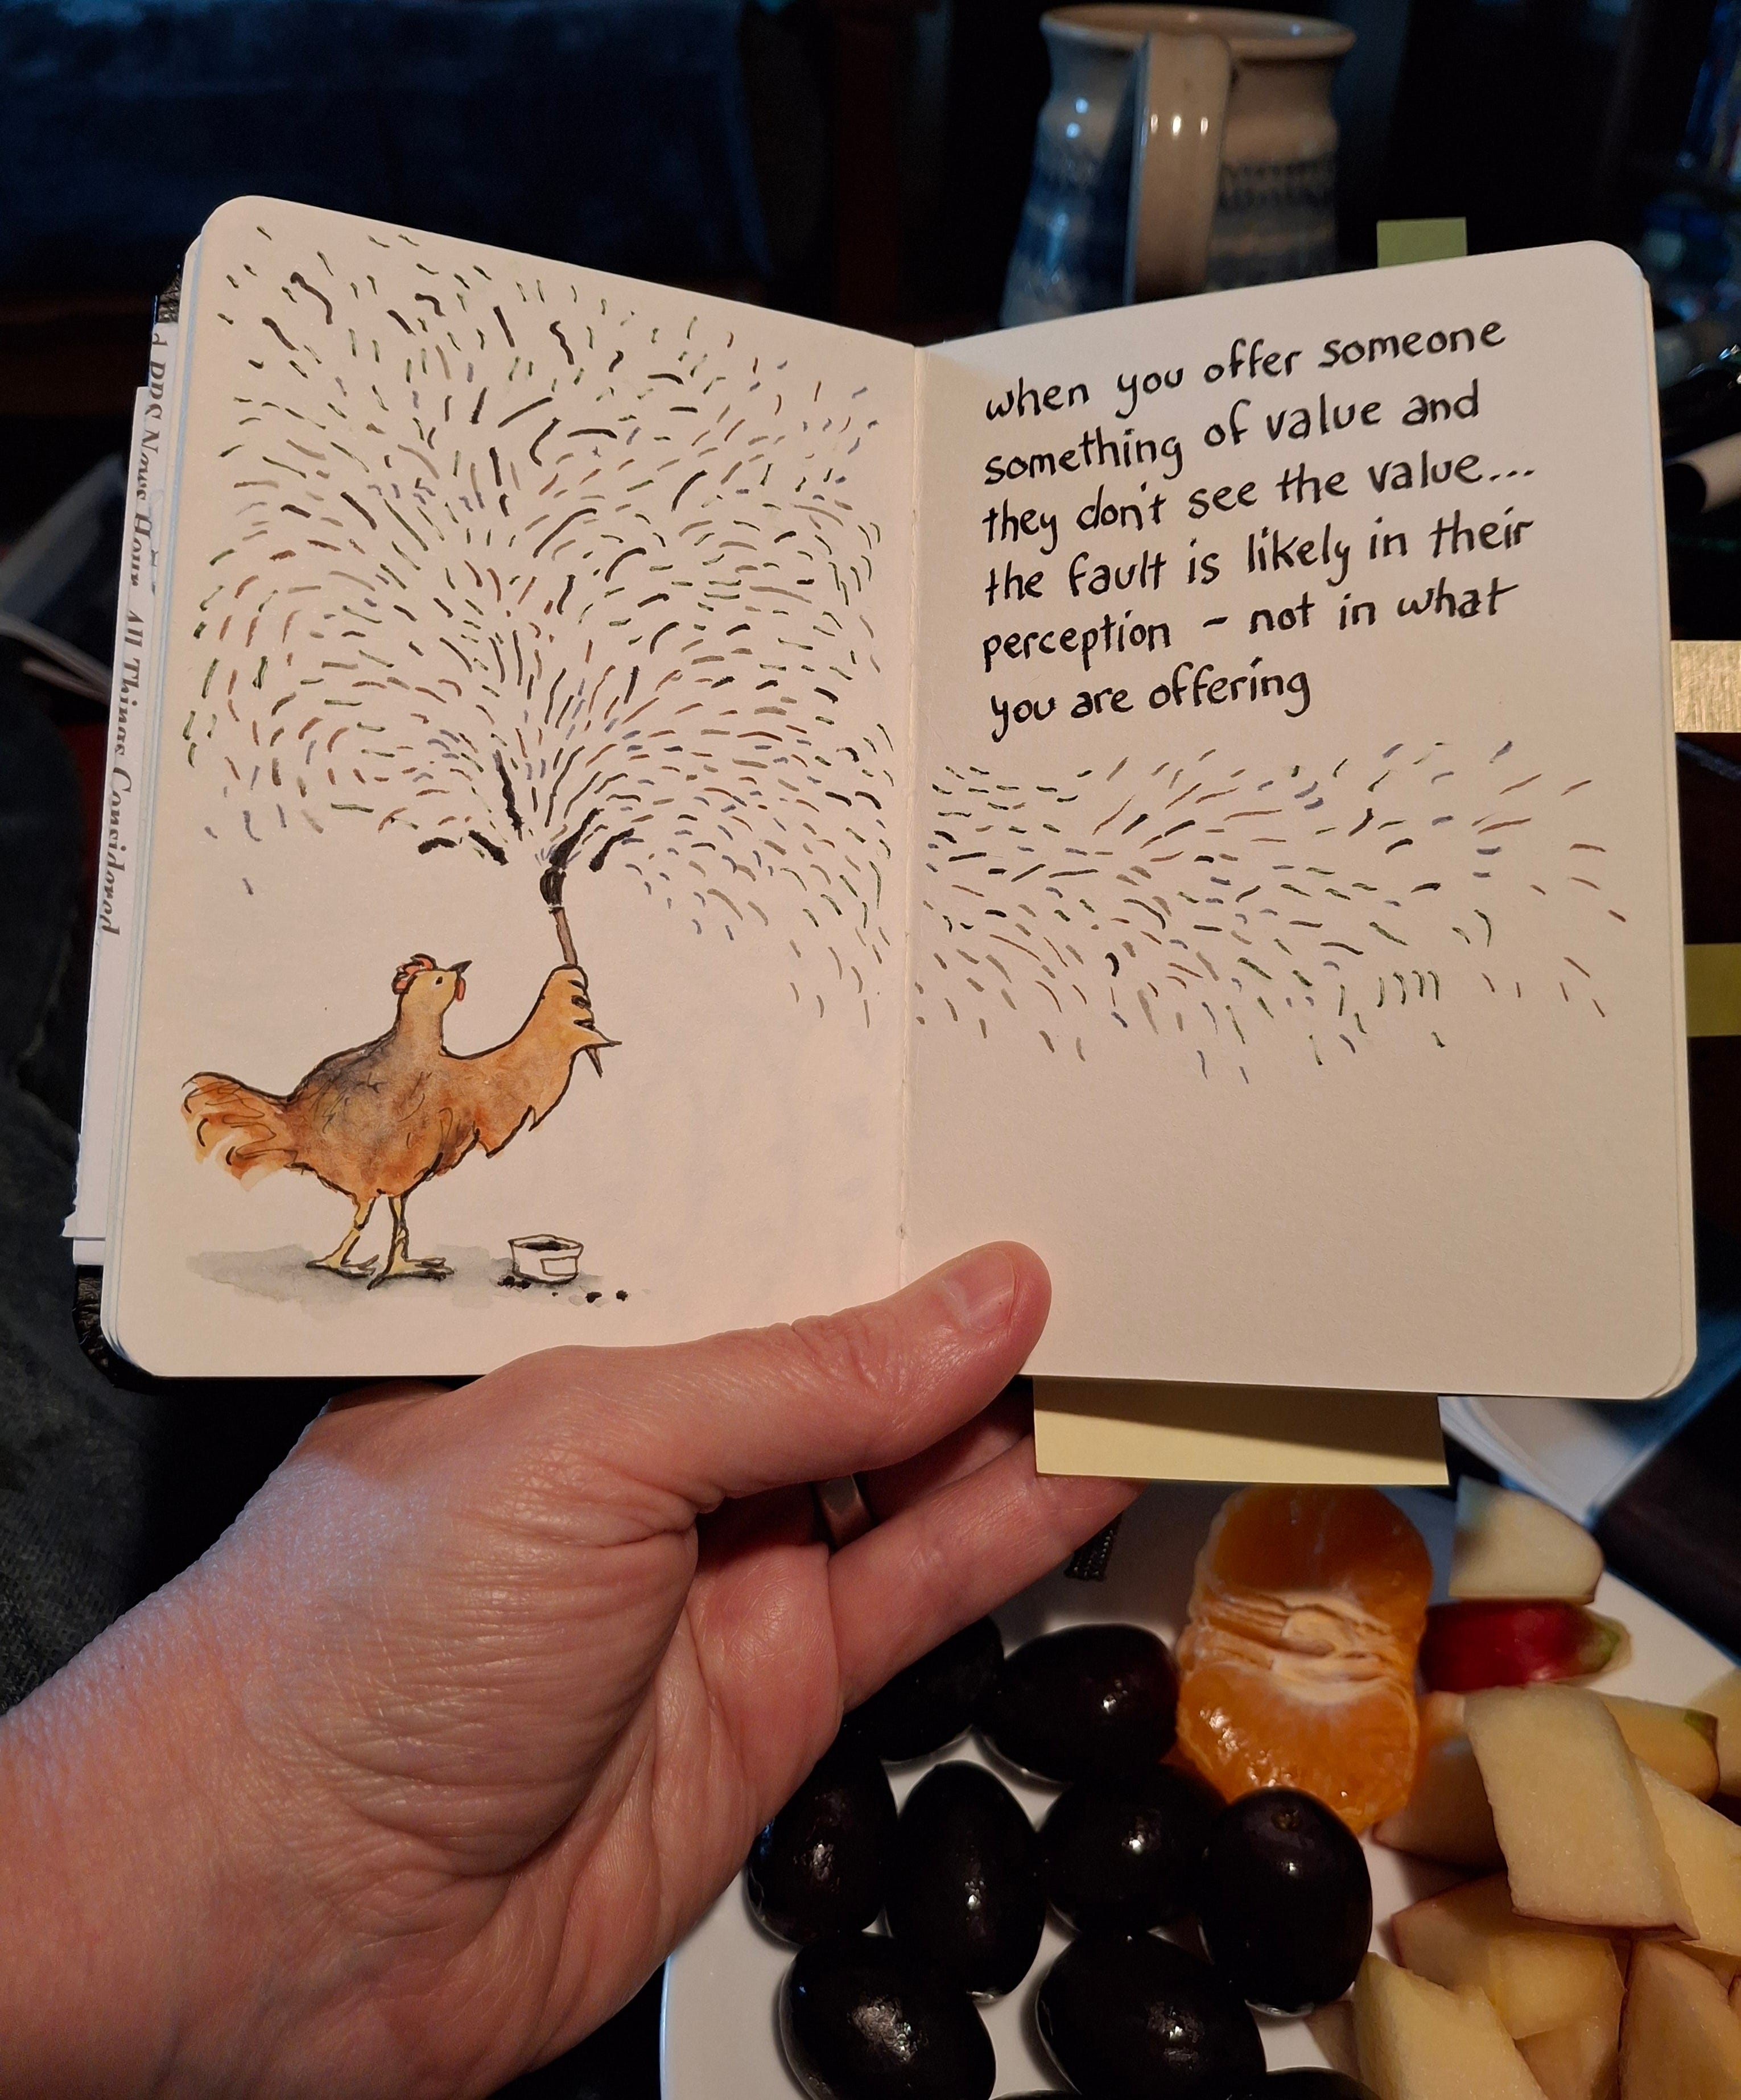 PBS News Hour, All Things Considered
when you offer someone
something of value and
they don't see the value....
the fault is likely in their
perception - not in what
you are offering